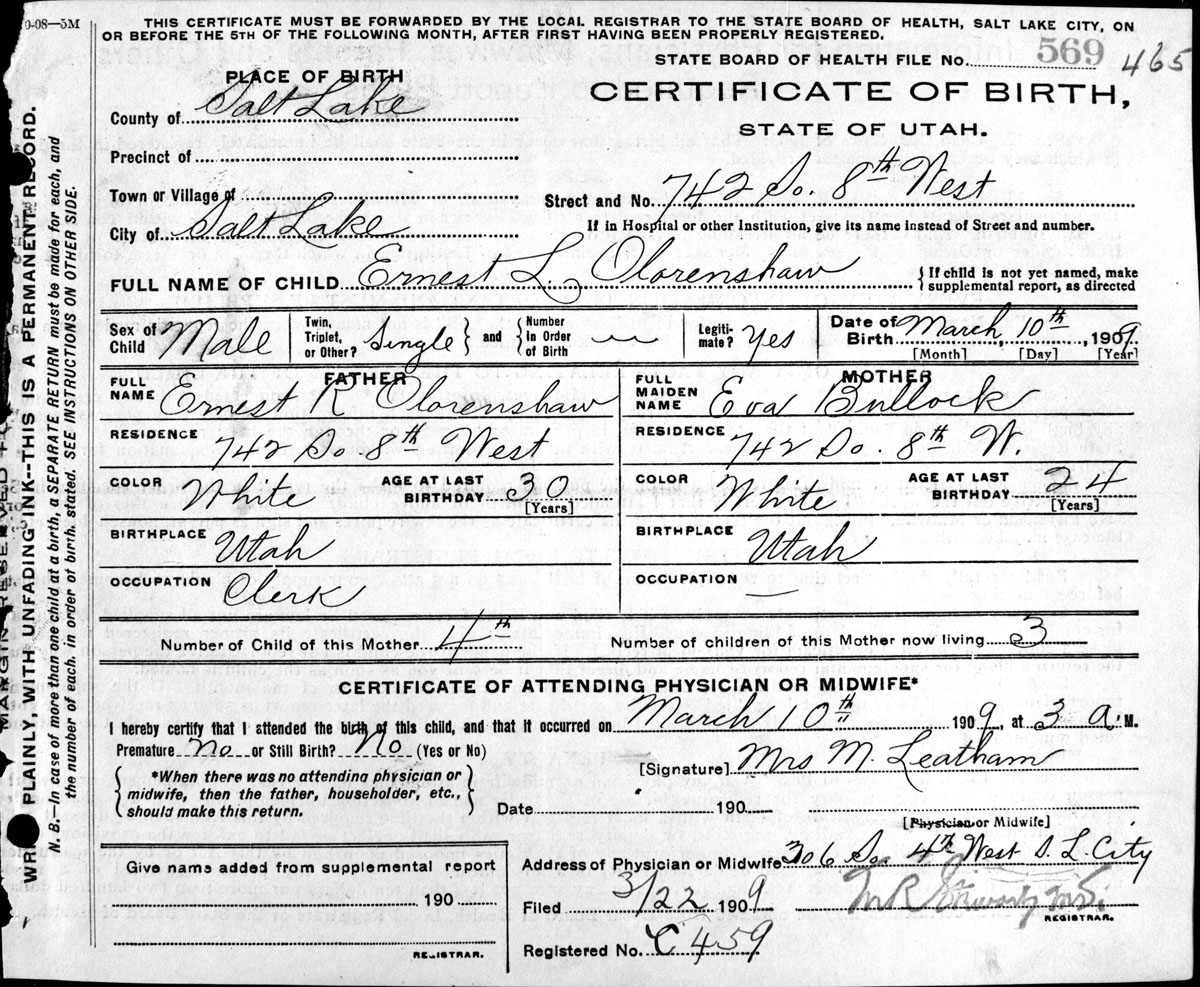 0-08—5M
THIS CERTIFICATE MUST BE FORWARDED BY THE LOCAL REGISTRAR TO THE STATE BOARD OF HEALTH, SALT LAKE CITY, ON
OR BEFORE THE 5TH OF THE FOLLOWING MONTH, AFTER FIRST HAVING BEEN PROPERLY REGISTERED.
STATE BOARD OF HEALTH FILE No. 569 465
PLACE OF BIRTH
CERTIFICATE OF BIRTH,
STATE OF UTAH.
County of Salt Lake
Precinct of
Town or Village of
Street and No. 742 So. 8th West
City of Salt Lake
If in Hospital or other Institution, give its name instead of Street and number.
FULL NAME OF CHILD Ernest L. Olorenshaw
{If child is not yet named, make
supplemental report, as directed
Sex of Child Male
Twin, Triplet, or Other? Single } and { Number In Order of Birth
Legiti- mate? Yes
Date of Birth March, 10th, 1909
[Month] [Day] [Year]
FATHER
FULL NAME Ernest R Olorenshaw
RESIDENCE 742 So 8th West
COLOR White AGE AT LAST BIRTHDAY 30
[Years]
BIRTHPLACE Utah
OCCUPATION Clerk
MOTHER
FULL MAIDEN NAME Eva Bullock
RESIDENCE 742 So. 8th W.
COLOR White AGE AT LAST BIRTHDAY 24
[Years]
BIRTHPLACE Utah
OCCUPATION —
Number of Child of this Mother 4th Number of children of this Mother now living 3
CERTIFICATE OF ATTENDING PHYSICIAN OR MIDWIFE*
I hereby certify that I attended the birth of this child, and that it occurred on March 10th 1909, at 3 a.M.
Premature No or Still Birth? No (Yes or No)
{*When there was no attending physician or
midwife, then the father, householder, etc.,
should make this return.}
[Signature] Mrs M. Leatham
Date 190
[Physician or Midwife]
Give name added from supplemental report
190
REGISTRAR.
Address of Physician or Midwife 306 So 4th West S. L. City
Filed 3/22 1909
REGISTRAR.
Registered No. C 459
WRITE PLAINLY, WITH UNFADING INK--THIS IS A PERMANENT RECORD.
N. B.—In case of more than one child at a birth, a SEPARATE RETURN must be made for each, and
the number of each, in order of birth, stated. SEE INSTRUCTIONS ON OTHER SIDE.